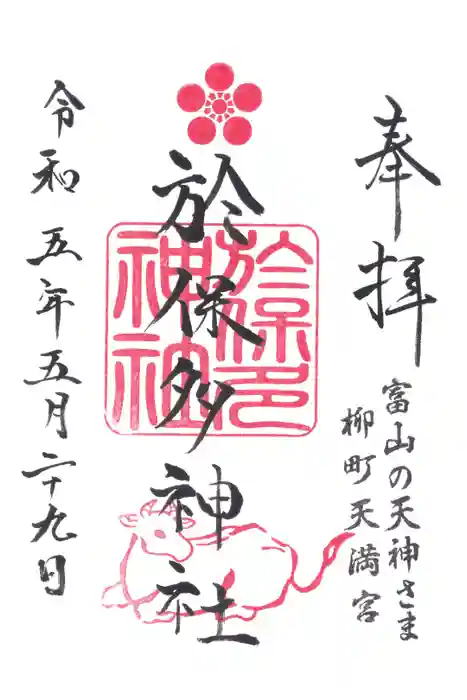 奉拝
富山の天神さま
柳町天満宮
於保多神社
於保多
神社
令和五年五月二十九日